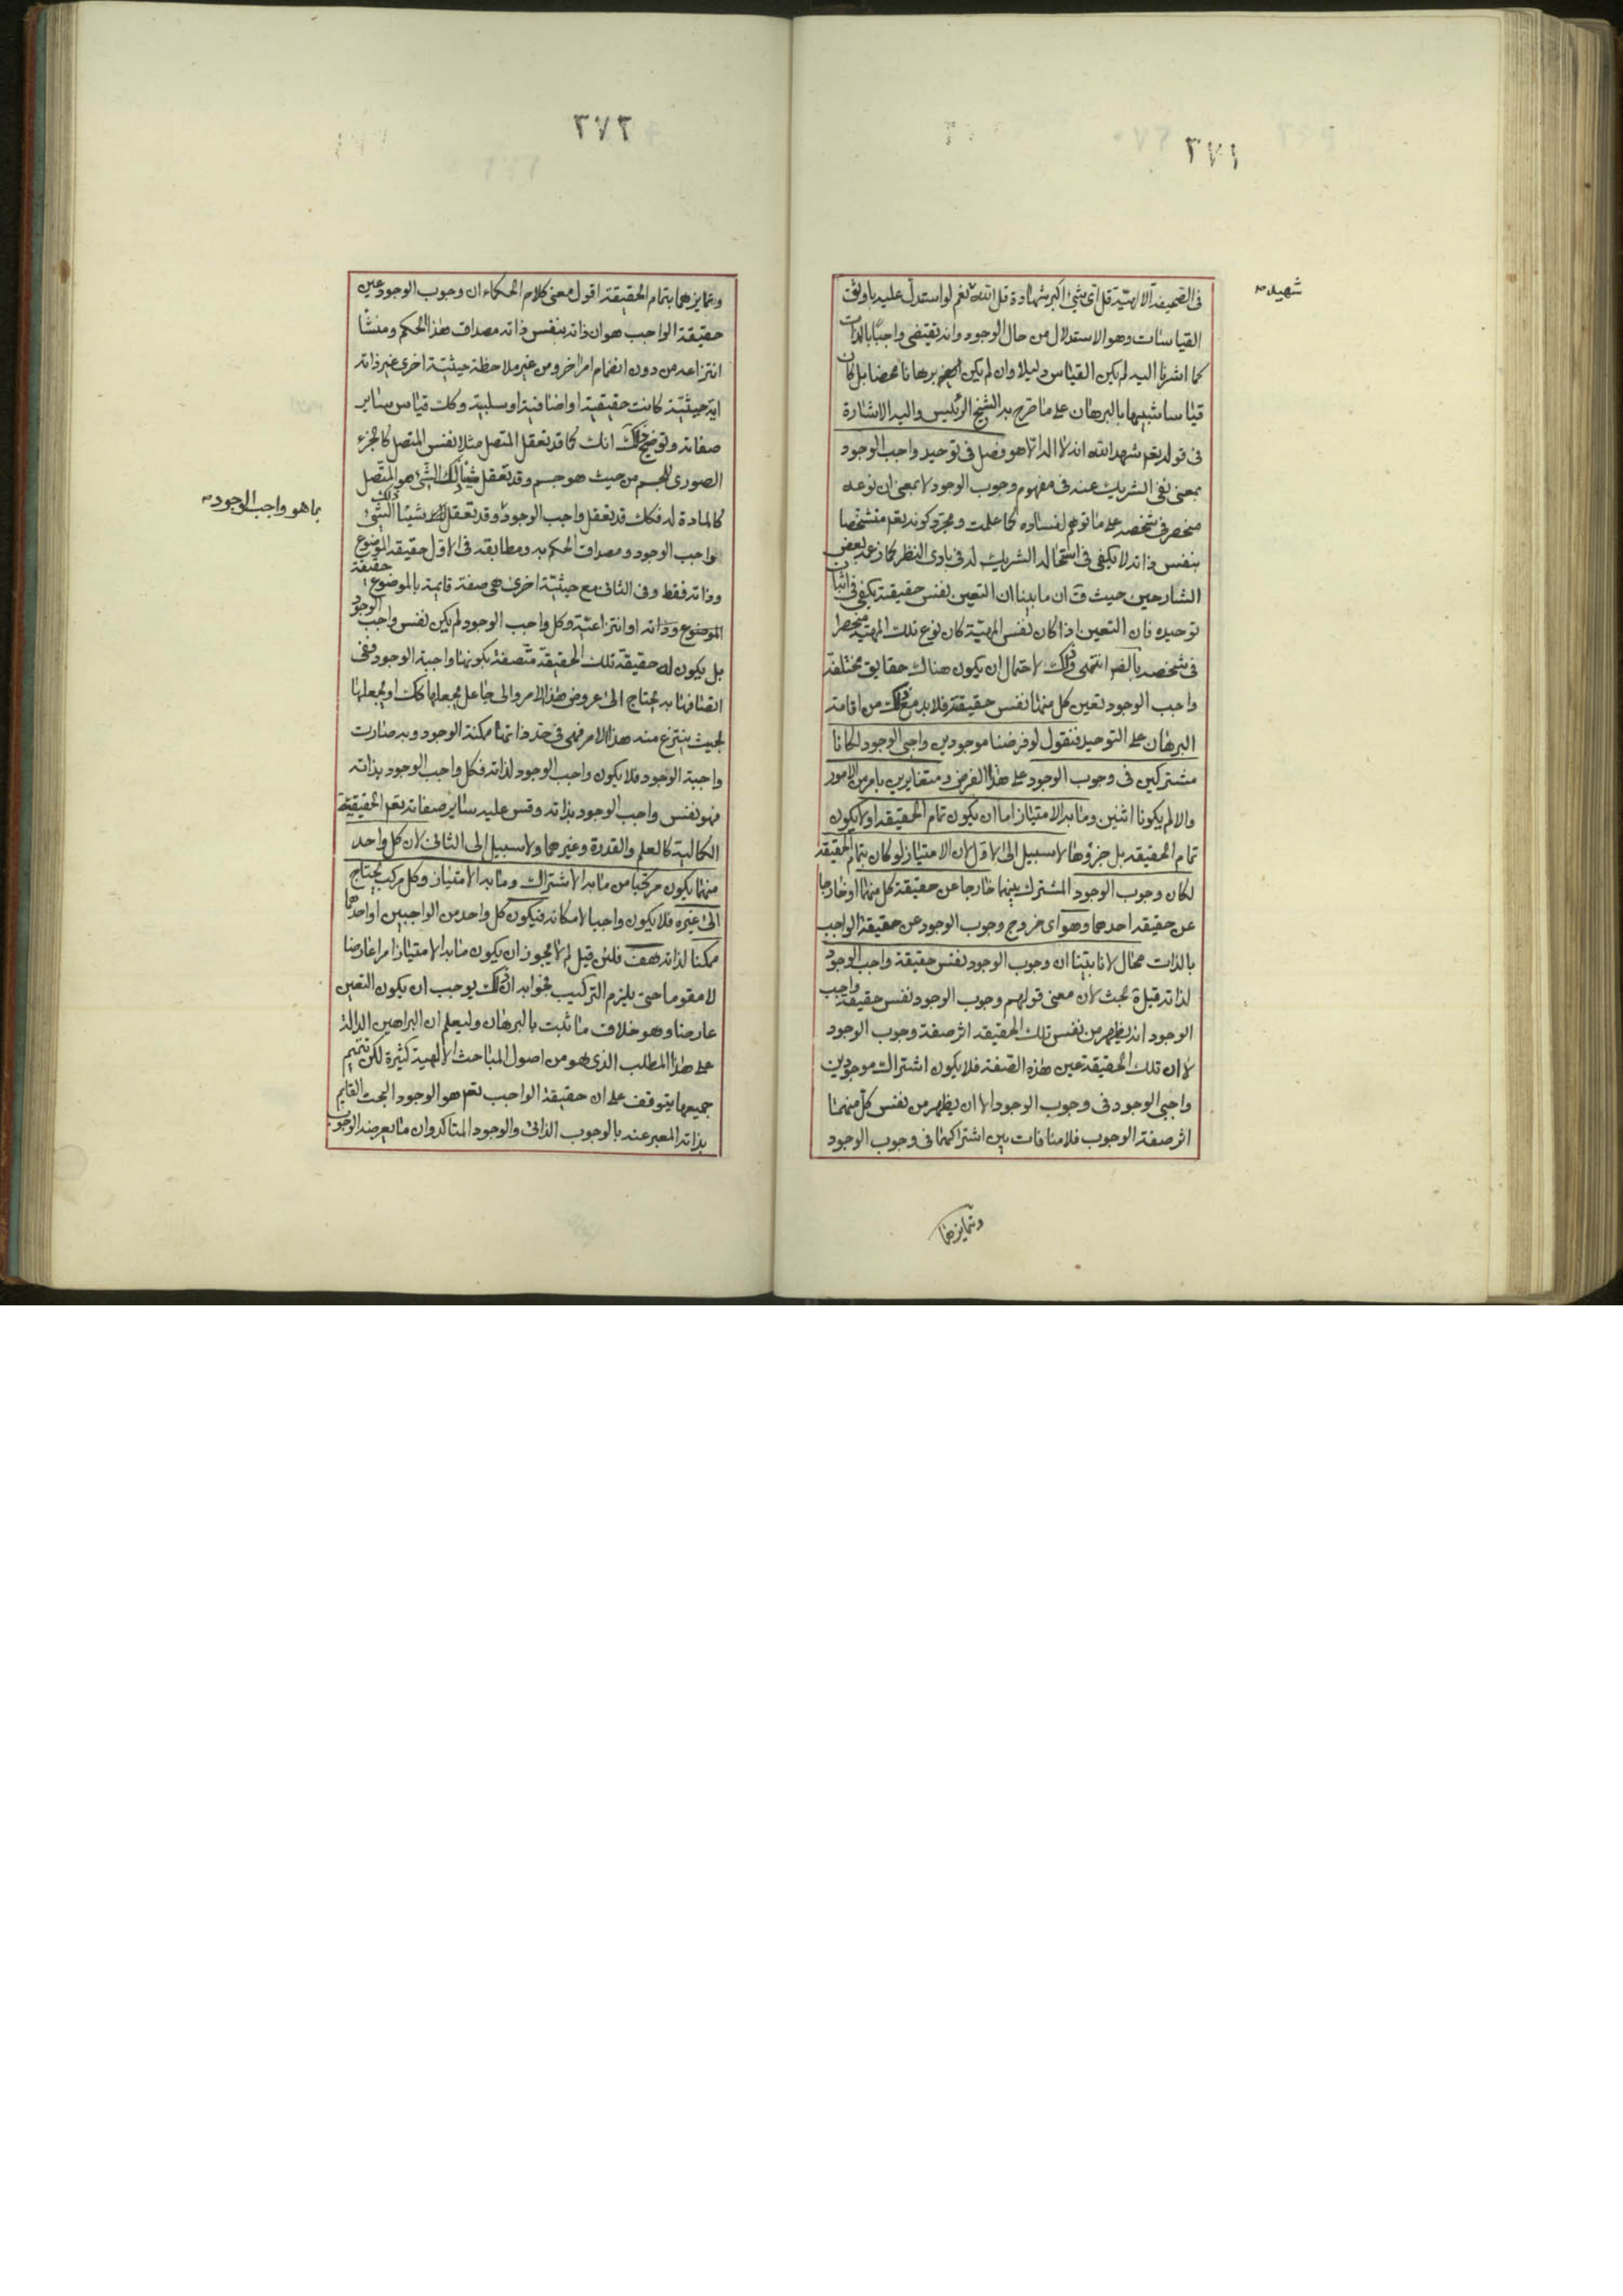 ٣٧١
فى الصحيفة الالهية قل اى شئ اكبر شهادة قل الله نعم لو استدل عليه باوثق
شهيد
القياسات وهو الاستدلال من حال الوجود وانه يقتضى واجبا بالذات
كما اشرنا اليه لم يكن القياس دليلا وان لم يكن برهانا محضا بل كان
قياسا شبيها بالبرهان على ما صرح به الشيخ الرئيس واليه الاشارة
فى قوله تعم شهد الله انه لا اله الا هو فصل فى توحيد واجب الوجود
بمعنى نفى الشريك عنه فى مفهوم وجوب الوجود لا بمعنى ان نوعه
منحصر فى شخصه على ما توهم لفساده كما علمت ومجرد كونه تعم متشخصا
بنفس ذاته لا يكفى فى استحالة الشريك له فى بادى النظر كما زعمه بعض
الشارحين حيث ق ان ما بينا ان التعين نفس حقيقته يكفى فى اثبات
توحيده فان التعين اذا كان نفس المهية كان نوع تلك المهية منحصرا
فى شخصه بالضر انتهى وذلك لاحتمال ان يكون هناك حقايق مختلفة
واجب الوجود تعين كل منها نفس حقيقته فلابد مع ذلك من اقامة
البرهان على التوحيد فنقول لو فرضنا موجودين واجبى الوجود لكانا
مشتركين فى وجوب الوجود على هذا الفرض ومتغايرين بامر من الامور
والا لم يكونا اثنين وما به الامتياز اما ان يكون تمام الحقيقة او لا يكون
تمام الحقيقه بل جزؤها لا سبيل الى الاول لان الامتياز لو كان بتمام الحقيقه
لكان وجوب الوجود المشترك بينهما خارجا عن حقيقة كل منهما او خارجا
عن حقيقه احدهما وهو اى خروج وجوب الوجود عن حقيقة الواجب
بالذات محال لانا بينا ان وجوب الوجود نفس حقيقة واجب الوجود
لذاته قيل بحث لان معنى قولهم وجوب الوجود نفس حقيقة واجب
الوجود انه يظهر من نفس تلك الحقيقه اثر صفة وجوب الوجود
لا ان تلك الحقيقة عين هذه الصفة فلا يكون اشتراك موجودين
واجبى الوجود فى وجوب الوجود الا ان يظهر من نفس كل منهما
اثر صفة الوجوب فلا منافات بين اشتراكهما فى وجوب الوجود
وتمايزهما
٣٧٢
وتمايزهما بتمام الحقيقة اقول معنى كلام الحكماء ان وجوب الوجود عين
حقيقة الواجب هو ان ذاته بنفس ذاته مصداق هذا الحكم ومنشأ
انتزاعه من دون انضمام امر اخر ومن غير ملاحظة حيثية اخرى غير ذاته
اية حيثية كانت حقيقية او اضافية او سلبية وكك قياس ساير
صفاته وتوضيح ذلك انك كما قد تعقل المتصل مثلا نفس المتصل كالجزء
الصورى للجسم من حيث هو جسم وقد تعقل شيئا ذلك الشئ هو المتصل
كالمادة له فكك قد تعقل واجب الوجود وقد تعقل شيئا ذلك الشئ
بما هو واجب الوجود
واجب الوجود ومصداق الحكم به ومطابقه فى الاول حقيقه الموضوع
وذاته فقط وفى الثانى مع حيثية اخرى هى صفة قايمة بالموضوع حقيقة
الموضوع وذاته او انتزاعية وكل واجب الوجود لم يكن نفس واجب الوجود
بل يكون له حقيقة تلك الحقيقة متصفة بكونها واجبة الوجود ففى
اتصافها به يحتاج الى عروض هذا الامر والى جاعل يجعلها كك او يجعلها
بحيث ينتزع منه هذا الامر فهى فى حد ذاتها ممكنة الوجود وبه صارت
واجبة الوجود فلا يكون واجب الوجود لذاته فكل واجب الوجود بذاته
فهو نفس واجب الوجود بذاته وقس عليه ساير صفاته تعم الحقيقية
الكمالية كالعلم والقدرة وغيرهما ولا سبيل الى الثانى لان كل واحد
منهما يكون مركبا من ما به الاشتراك وما به الامتياز وكل مركب يحتاج
الى غيره فلا يكون واجبا لامكانه فيكون كل واحد من الواجبين او احدهما
ممكنا لذاته هف فلئن قيل لم لا يجوز ان يكون ما به الامتياز امرا عارضا
لا مقوما حتى يلزم التركيب فجوابه ان ذلك يوجب ان يكون التعين
عارضا وهو خلاف ما ثبت بالبرهان وليعلم ان البراهين الدالة
على هذا المطلب الذى هو من اصول المباحث الالهية كثيرة لكن تتميم
جميعها يتوقف على ان حقيقة الواجب تعم هو الوجود البحت القايم
بذاته المعبر عنه بالوجوب الذاتى والوجود المتاكد وان ما يعرضه الوجوب